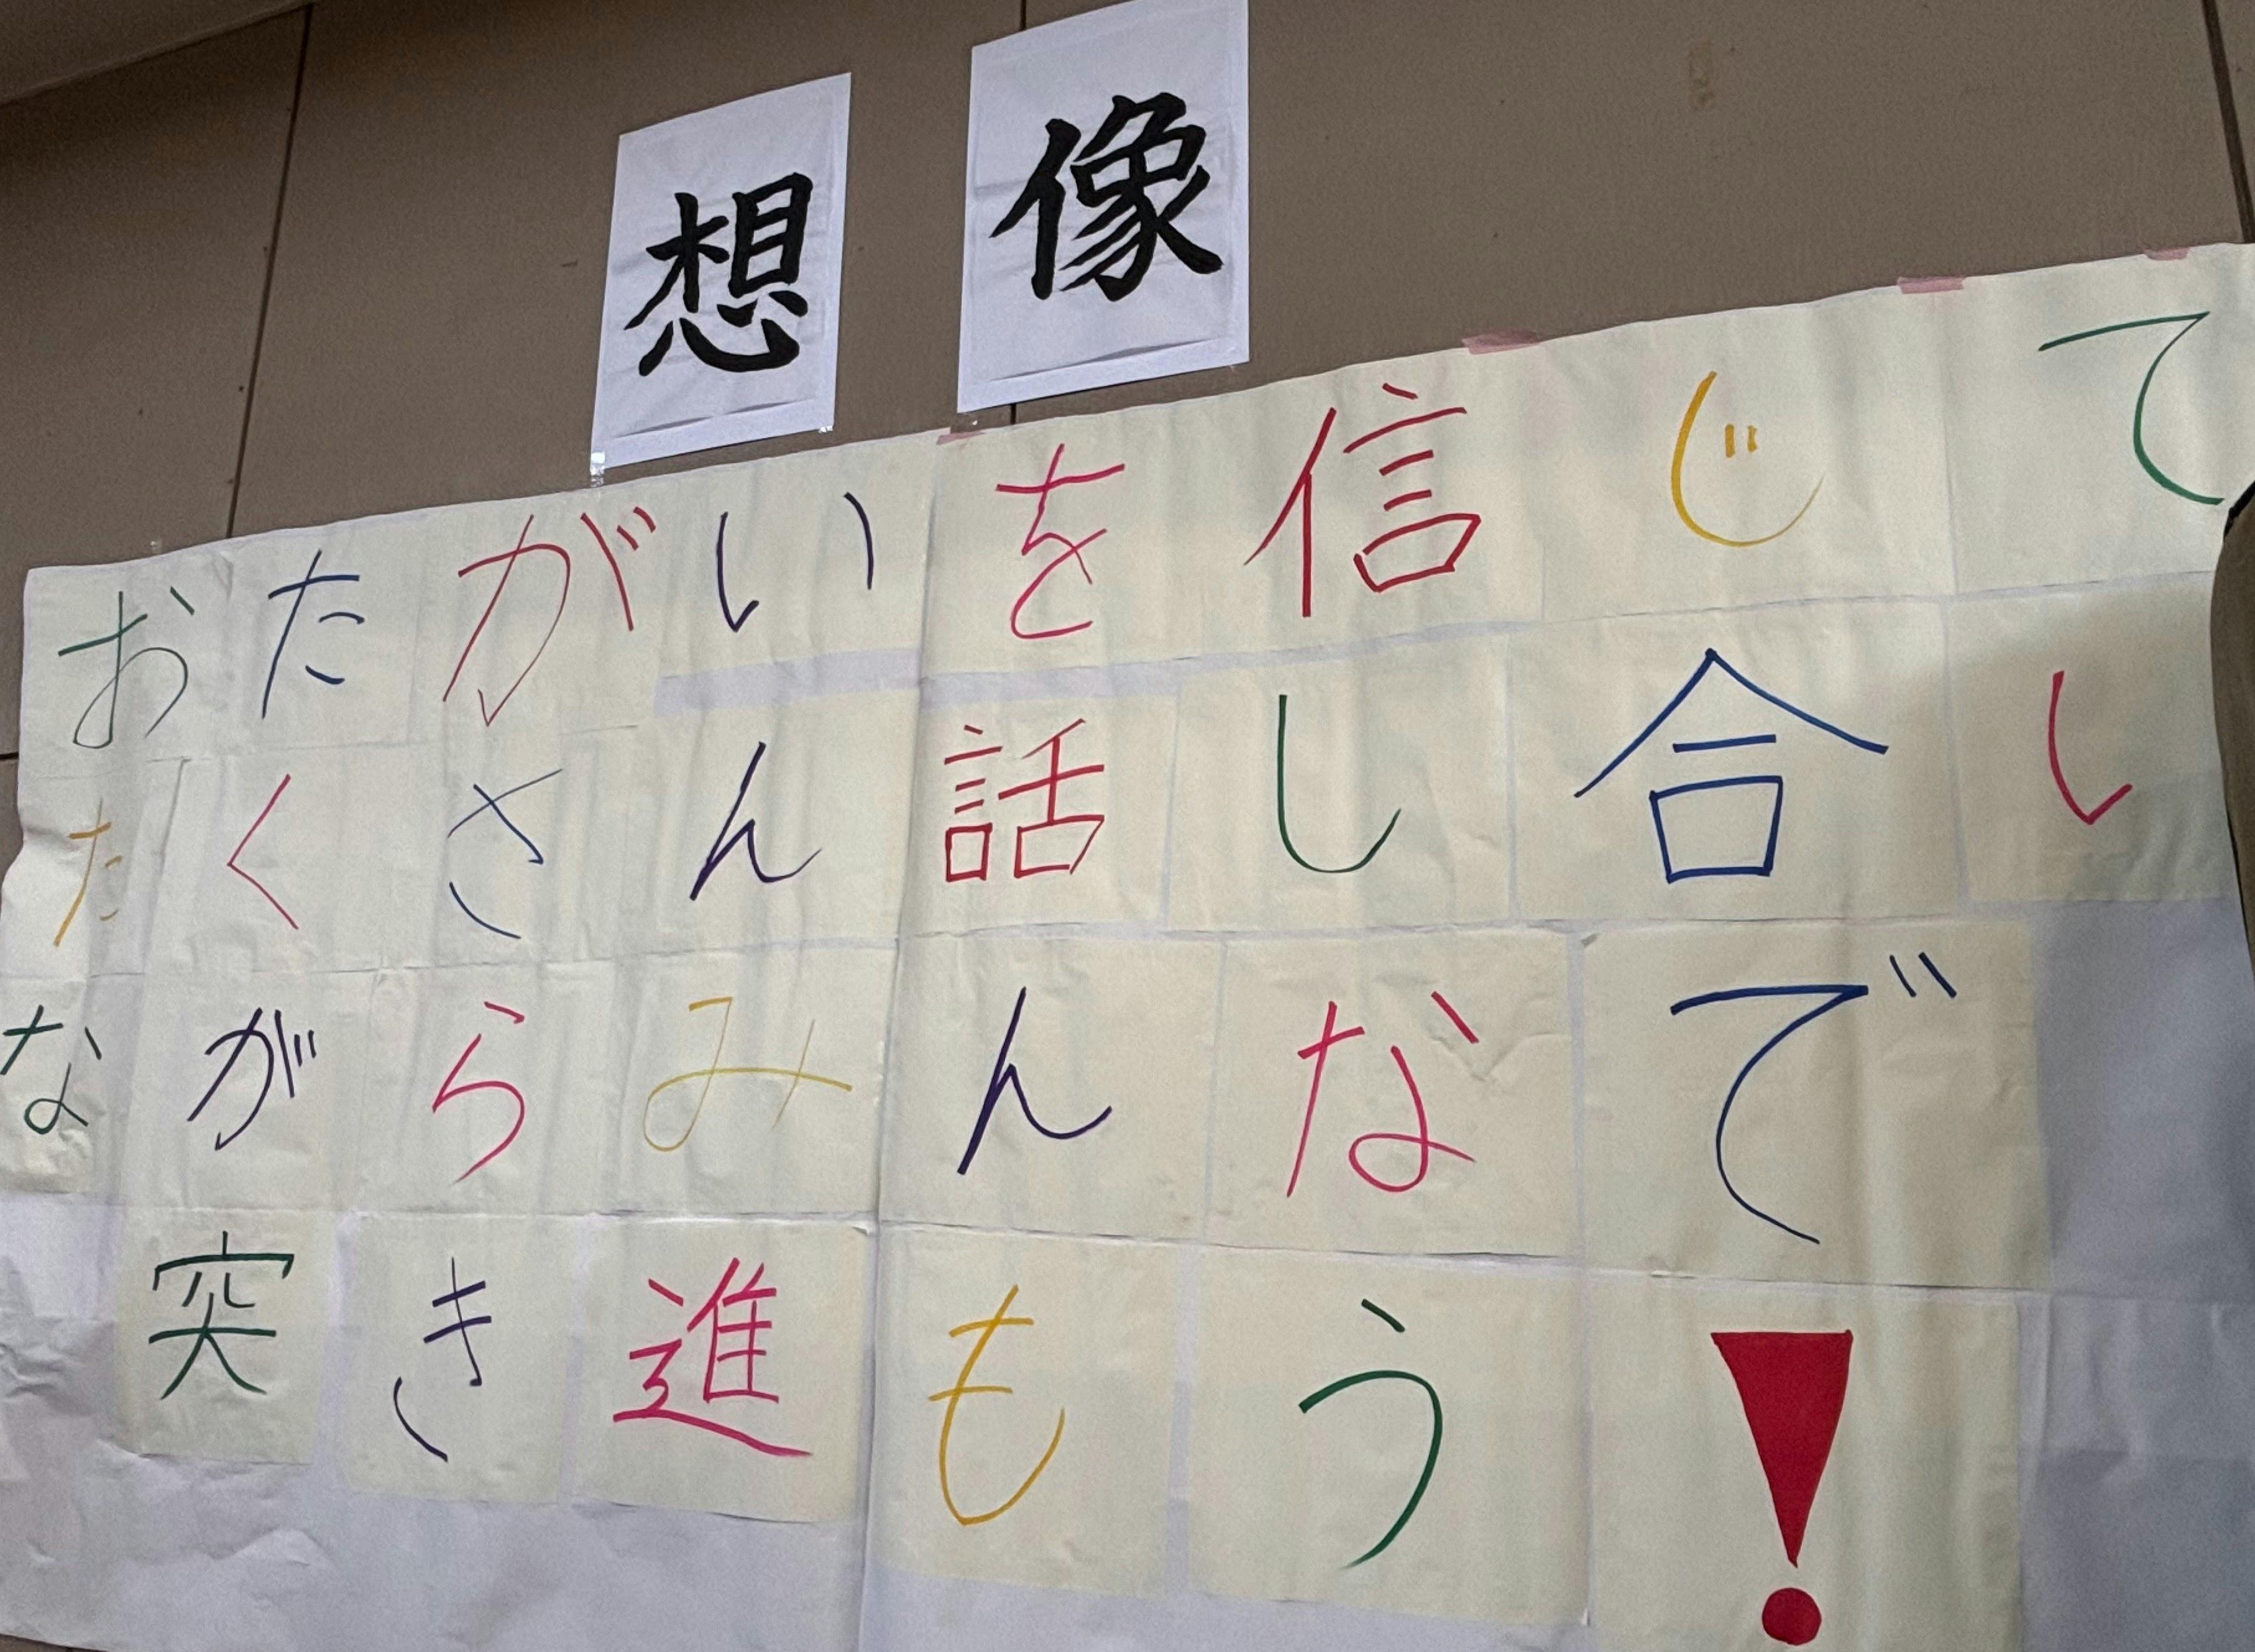 想像
おたがいを信じて
たくさん話し合い
ながらみんなで
突き進もう!